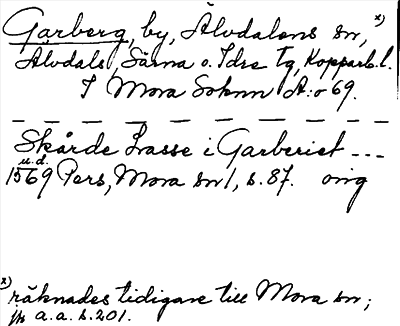 Garberg, by, Älvdalens sn, x)
Älvdals, Särna o. Idre Tg, Kopparb. l.
I Mora Soknn A:o 69.
— — — — — — — — — — —
Skårde Lasse i Garberiet ---
u.d.
1569 Pers, Mora sn 1, s. 87. orig
x) räknades tidigare till Mora sn;
jfr a.a. s. 201.